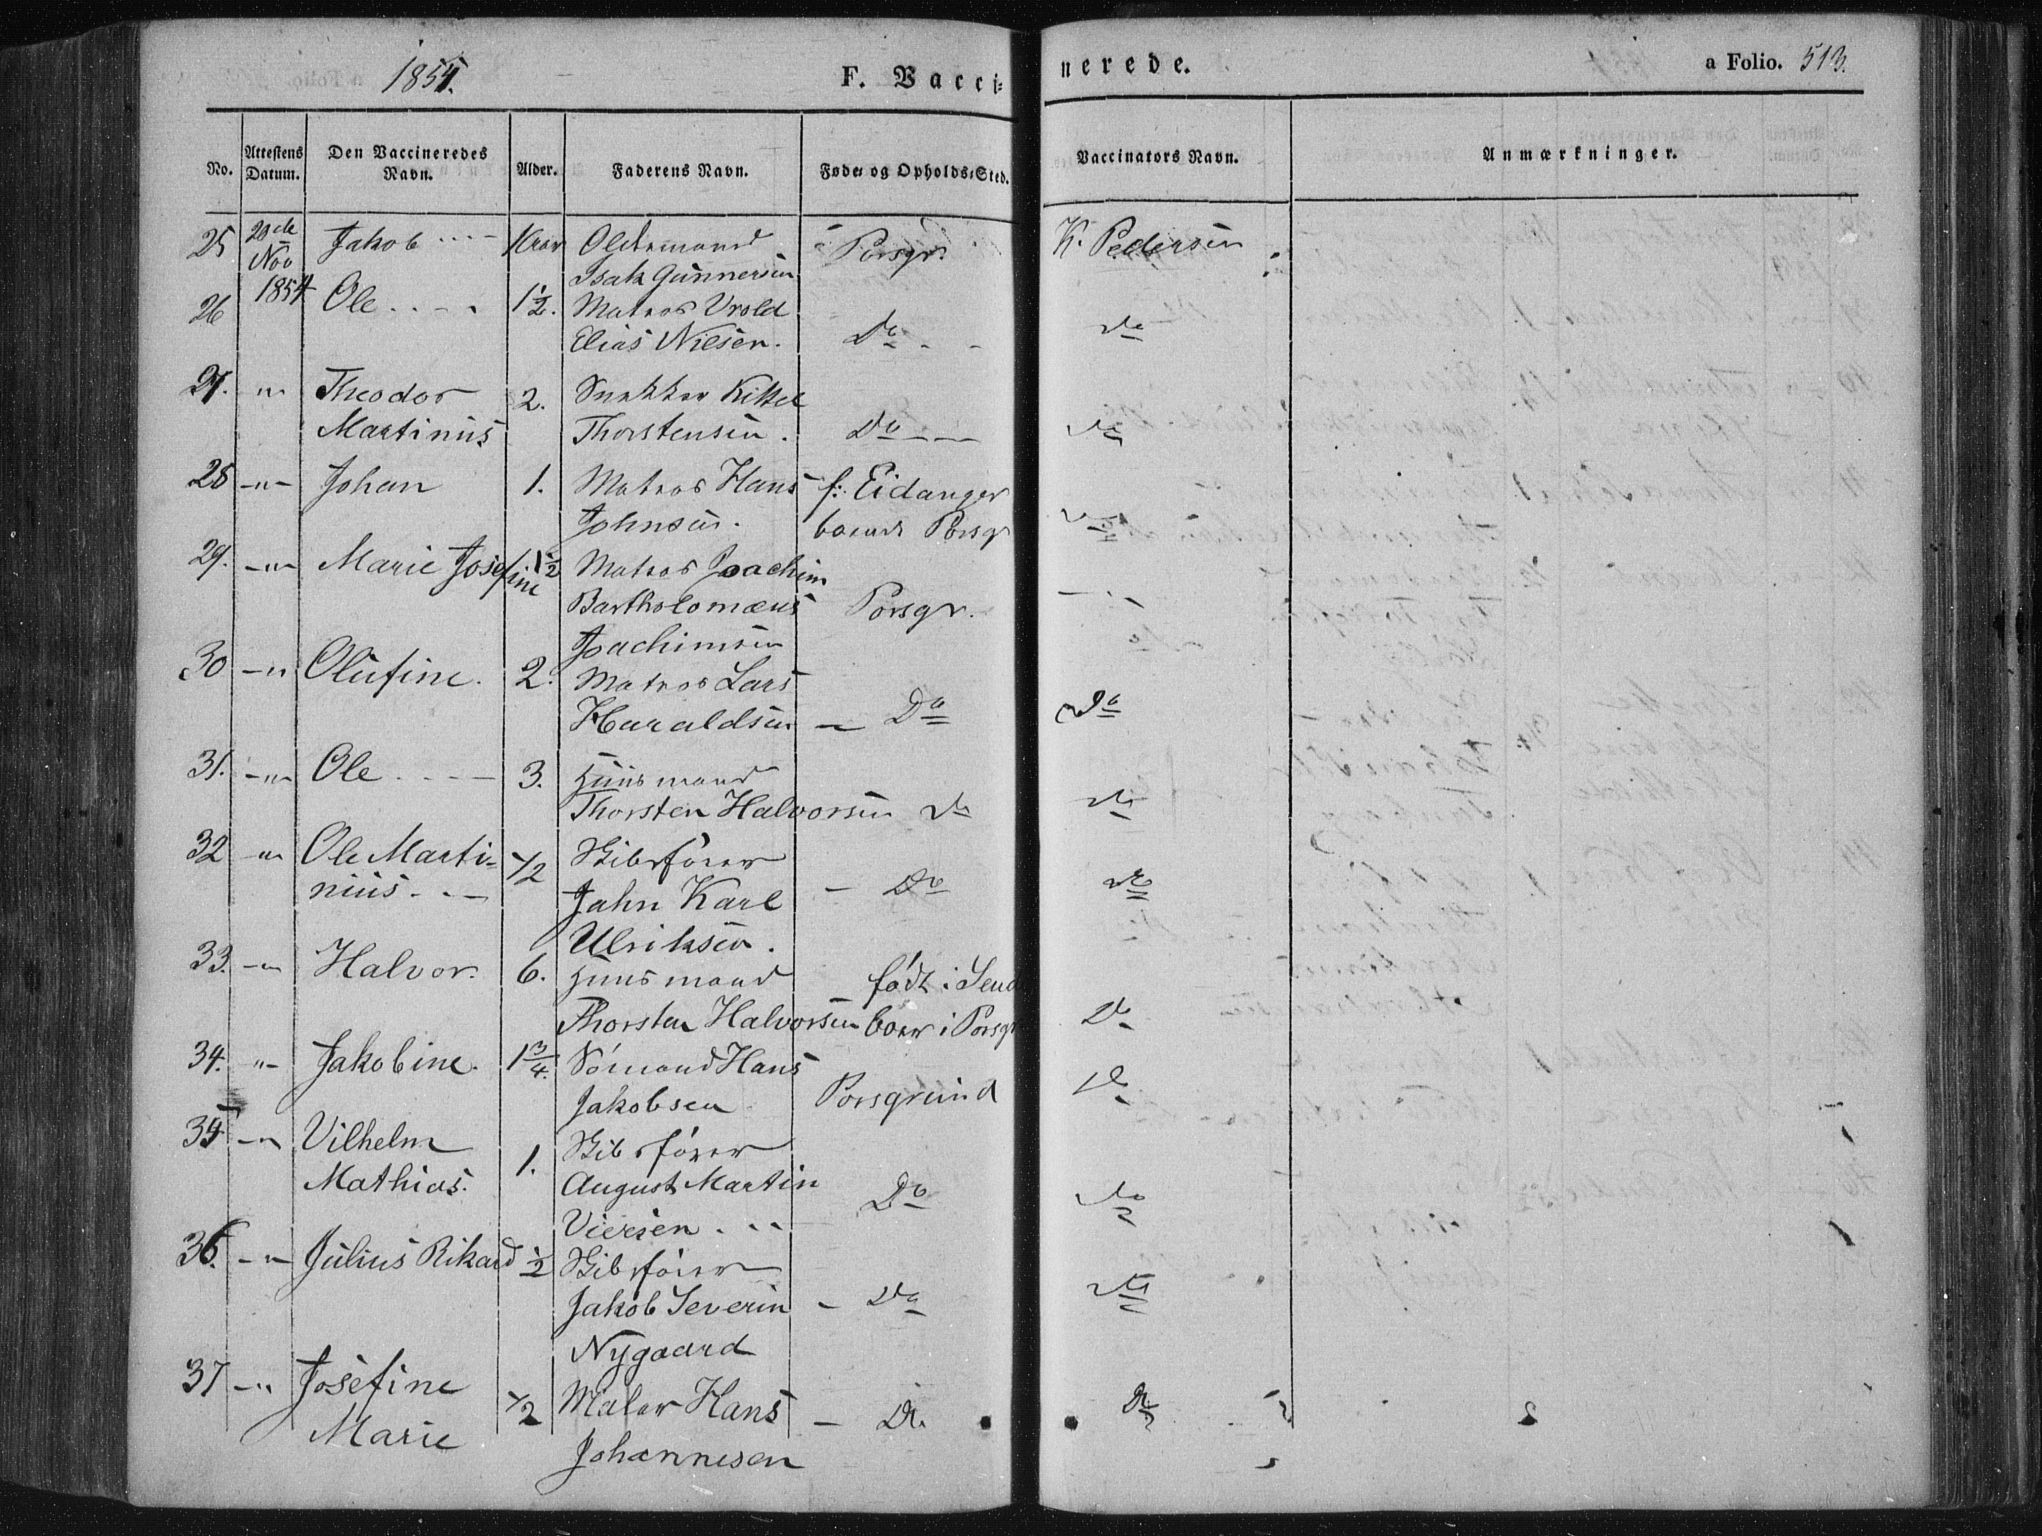 1854.
F. Vacci-
nerede.
a Folio. 513.
No.
Attestens Datum.
Den Vaccineredes Navn.
Alder.
Faderens Navn.
Føde- og Opholds-Sted.
Vaccinators Navn.
Anmærkninger.
25 20de Nov 1854 Jakob
Isak Gunnersen
Porsgr.
K. Pedersen
26 Ole 1½. Matros Vrold
Elias Nilsen. Do Do
27. -"- Theodor 2. Snekker Kittel
Martinus Thorstensen. Do Do
28 -"- Johan 1. Matros Hans f: Eidanger
Johnsen. boende Porsgr Do
29. -"- Marie Josefine 1½ Matros Joachim
Bartholomæus Porsgr.
Joachimsen Do
30 -"- Olufine. 2. Matros Lars
Haraldsen - Do Do
31. -"- Ole 3. Huusmand
Thorsten Halvorsen Do Do
32 -"- Ole Marti- 1/2 Skibsfører
nius Jahn Karl - Do Do
Ulriksen.
33. -"- Halvor. 6. Huusmand født i
Thorsten Halvorsen boer i Porsgr Do
34. -"- Jakobine. 1¾. Sømand Hans
Jakobsen Porsgrund Do
35 -"- Vilhelm 1. Skibsfører
Mathias. August Martin Do Do
Viersen
36. -"- Julius Rikard ½ Skibsfører
Jakob Severin - Do Do
Nygaard
37 -"- Josefine 1/2 Maler Hans - Do. Do
Marie Johannesen